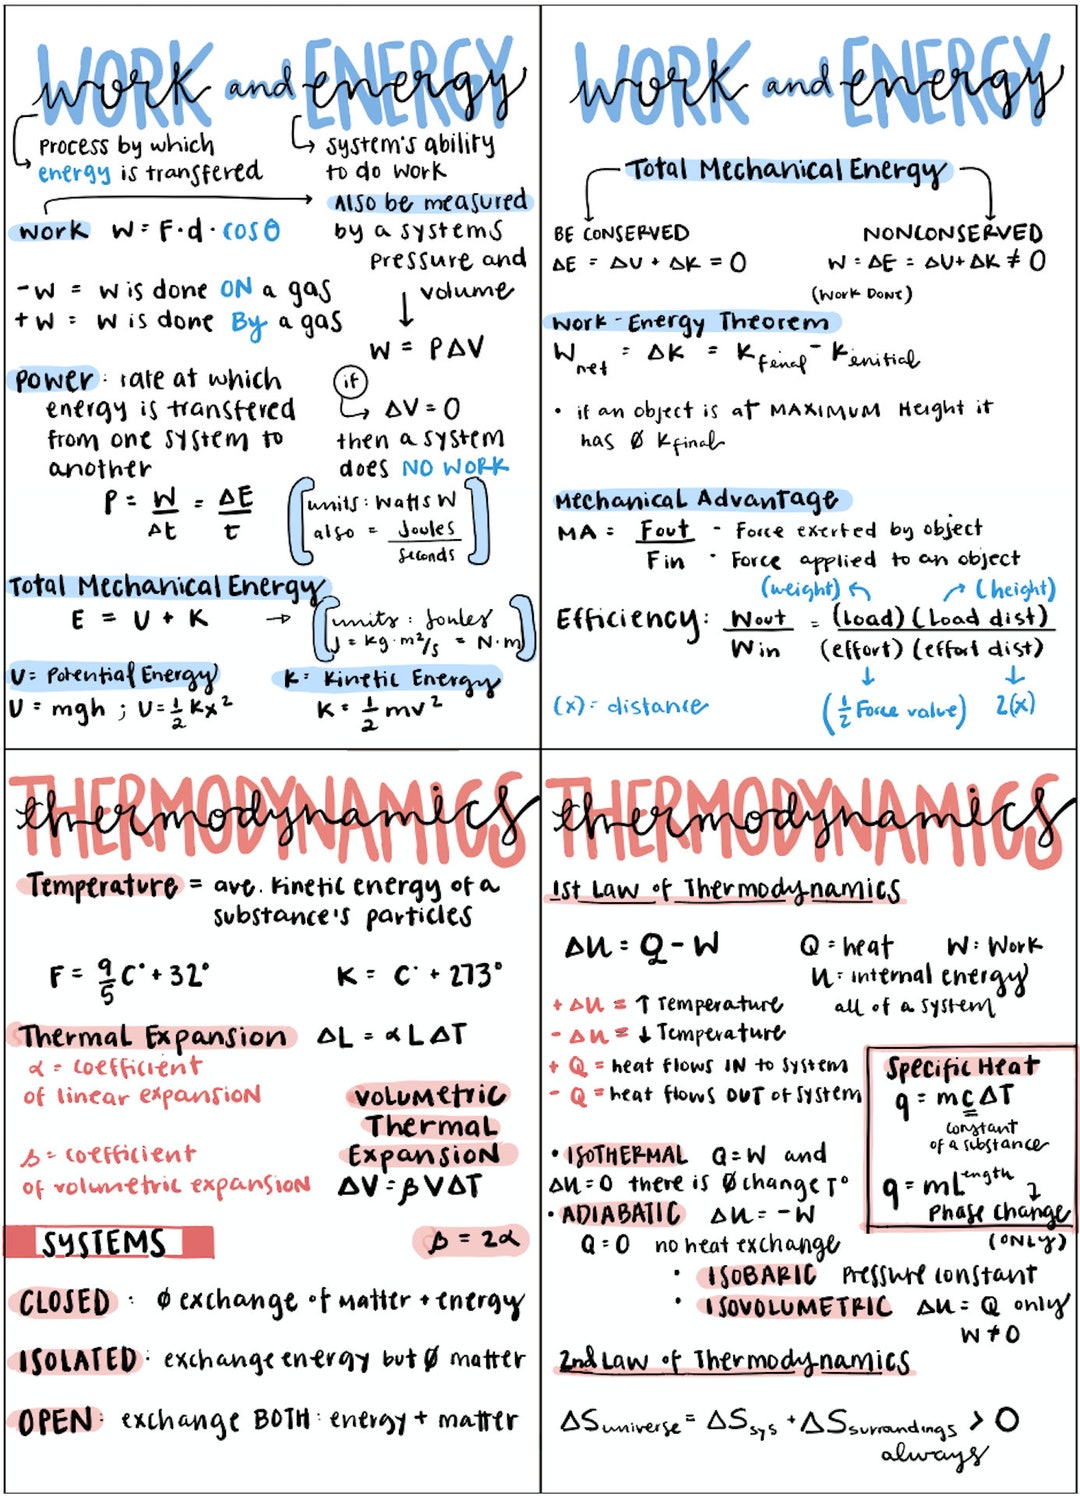 WORK and ENERGY
work and energy
Process by which
energy is transfered
system's ability
to do work
Also be measured
by a systems
pressure and
volume
W = PΔV
if
ΔV = 0
then a system
does NO WORK
work W = F·d·cosθ
-W = W is done ON a gas
+W = W is done By a gas
power: rate at which
energy is transfered
from one system to
another
P = W/Δt = ΔE/t
units: Watts W
also = Joules/seconds
Total Mechanical Energy
E = U + K
units: Joules
J = kg·m²/s = N·m
U = Potential Energy
U = mgh ; U = 1/2 Kx²
K = Kinetic Energy
K = 1/2 mv²
WORK and ENERGY
work and energy
Total Mechanical Energy
BE CONSERVED
ΔE = ΔU + ΔK = 0
NONCONSERVED
W = ΔE = ΔU + ΔK ≠ 0
(Work Done)
Work - Energy Theorem
Wnet = ΔK = Kfinal - Kinitial
• if an object is at MAXIMUM Height it
has ø Kfinal
Mechanical Advantage
MA = Fout - Force exerted by object
Fin - Force applied to an object
(weight) (height)
Efficiency: Wout/Win = (load)(Load dist)/(effort)(effort dist)
(x) = distance
(1/2 Force value) 2(x)
THERMODYNAMICS
thermodynamics
Temperature = ave. kinetic energy of a
substance's particles
F = 9/5 C° + 32°
K = C° + 273°
Thermal Expansion ΔL = αLΔT
α = coefficient
of linear expansion
volumetric
Thermal
Expansion
ΔV = βVΔT
β = coefficient
of volumetric expansion
SYSTEMS
β = 2α
CLOSED : ø exchange of matter + energy
ISOLATED: exchange energy but ø matter
OPEN: exchange BOTH: energy + matter
THERMODYNAMICS
thermodynamics
1st Law of Thermodynamics
Δu = Q - W
Q = heat W: Work
u = internal energy
all of a system
+ Δu = ↑ Temperature
- Δu = ↓ Temperature
+ Q = heat flows IN to system
- Q = heat flows OUT of system
Specific Heat
q = mcΔT
constant
of a substance
q = mLength
Phase change
(ONLY)
• ISOTHERMAL Q = W and
Δu = 0 there is ø change T°
• ADIABATIC Δu = -W
Q = 0 no heat exchange
• ISOBARIC Pressure constant
• ISOVOLUMETRIC Δu = Q only
W ≠ 0
2nd Law of Thermodynamics
ΔSuniverse = ΔSsys + ΔSsurrandings > 0
always